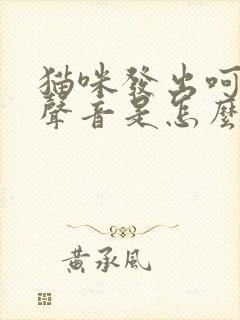 猫咪發出呵
聲音是怎麼
黃承風